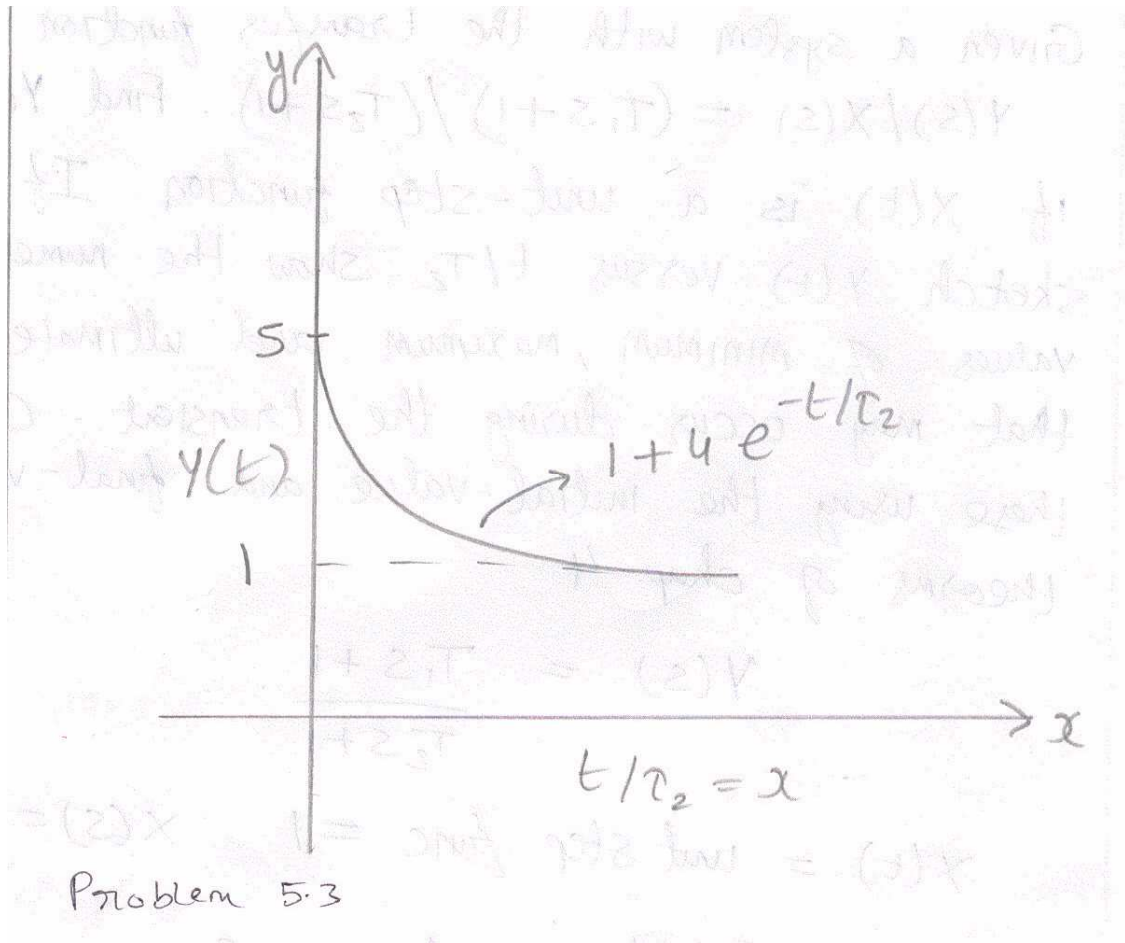 y
5
1 + 4 e^{-t/τ₂}
Y(t)
1
x
t/τ₂ = x
Problem 5.3